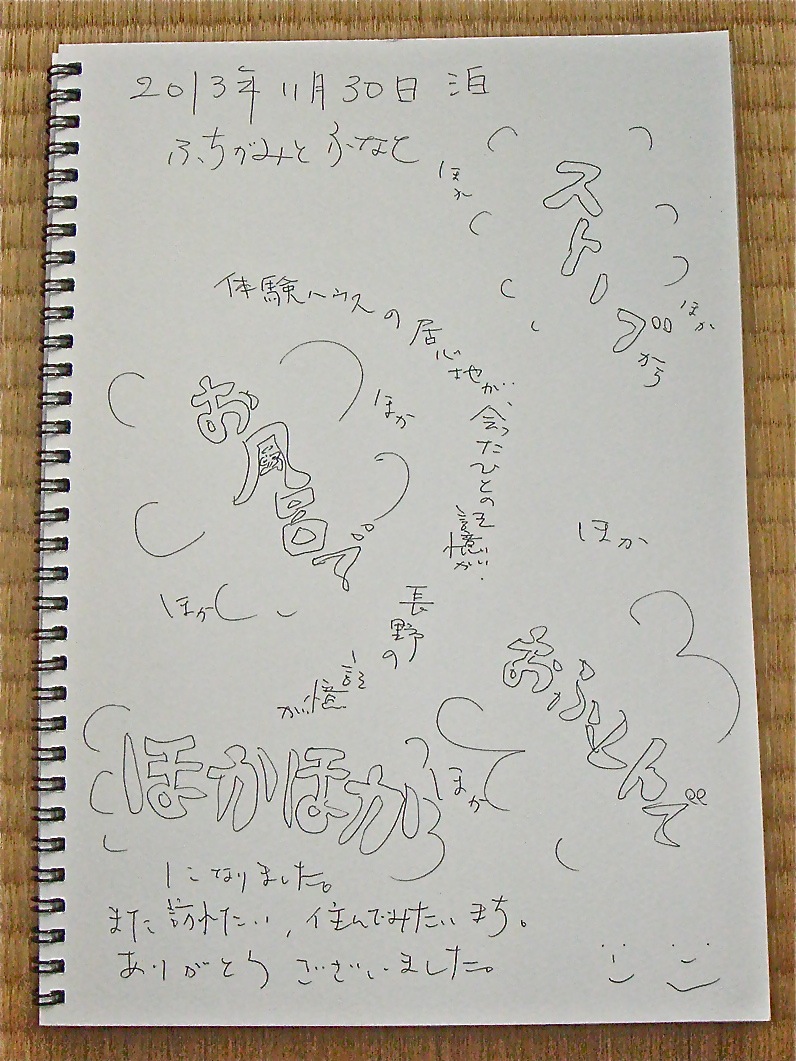 2013年11月30日 泊
ふちがみとふなと
ほか
ストーブから
ほか
体験ハウスの居心地が、会ったひとの記憶が、
長野の記憶が
お風呂で
ほか
ほか
ほか
おふとんで
ほかほか
ほか
になりました。
また訪れたい、住んでみたいまち。
ありがとう ございました。